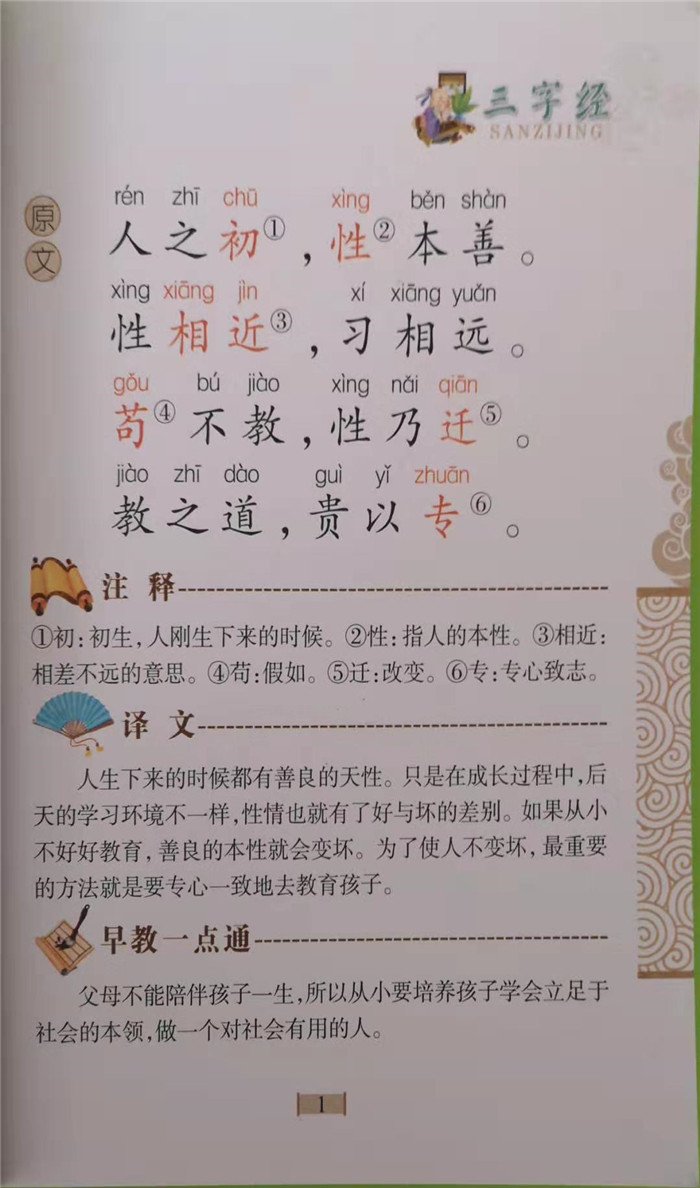 三字经
SANZIJING
原文
rén zhī chū xìng běn shàn
人之初①，性②本善。
xìng xiāng jìn xí xiāng yuǎn
性相近③，习相远。
gǒu bú jiào xìng nǎi qiān
苟④不教，性乃迁⑤。
jiào zhī dào guì yǐ zhuān
教之道，贵以专⑥。
注释
①初：初生，人刚生下来的时候。②性：指人的本性。③相近：
相差不远的意思。④苟：假如。⑤迁：改变。⑥专：专心致志。
译文
人生下来的时候都有善良的天性。只是在成长过程中，后
天的学习环境不一样，性情也就有了好与坏的差别。如果从小
不好好教育，善良的本性就会变坏。为了使人不变坏，最重要
的方法就是要专心一致地去教育孩子。
早教一点通
父母不能陪伴孩子一生，所以从小要培养孩子学会立足于
社会的本领，做一个对社会有用的人。
1